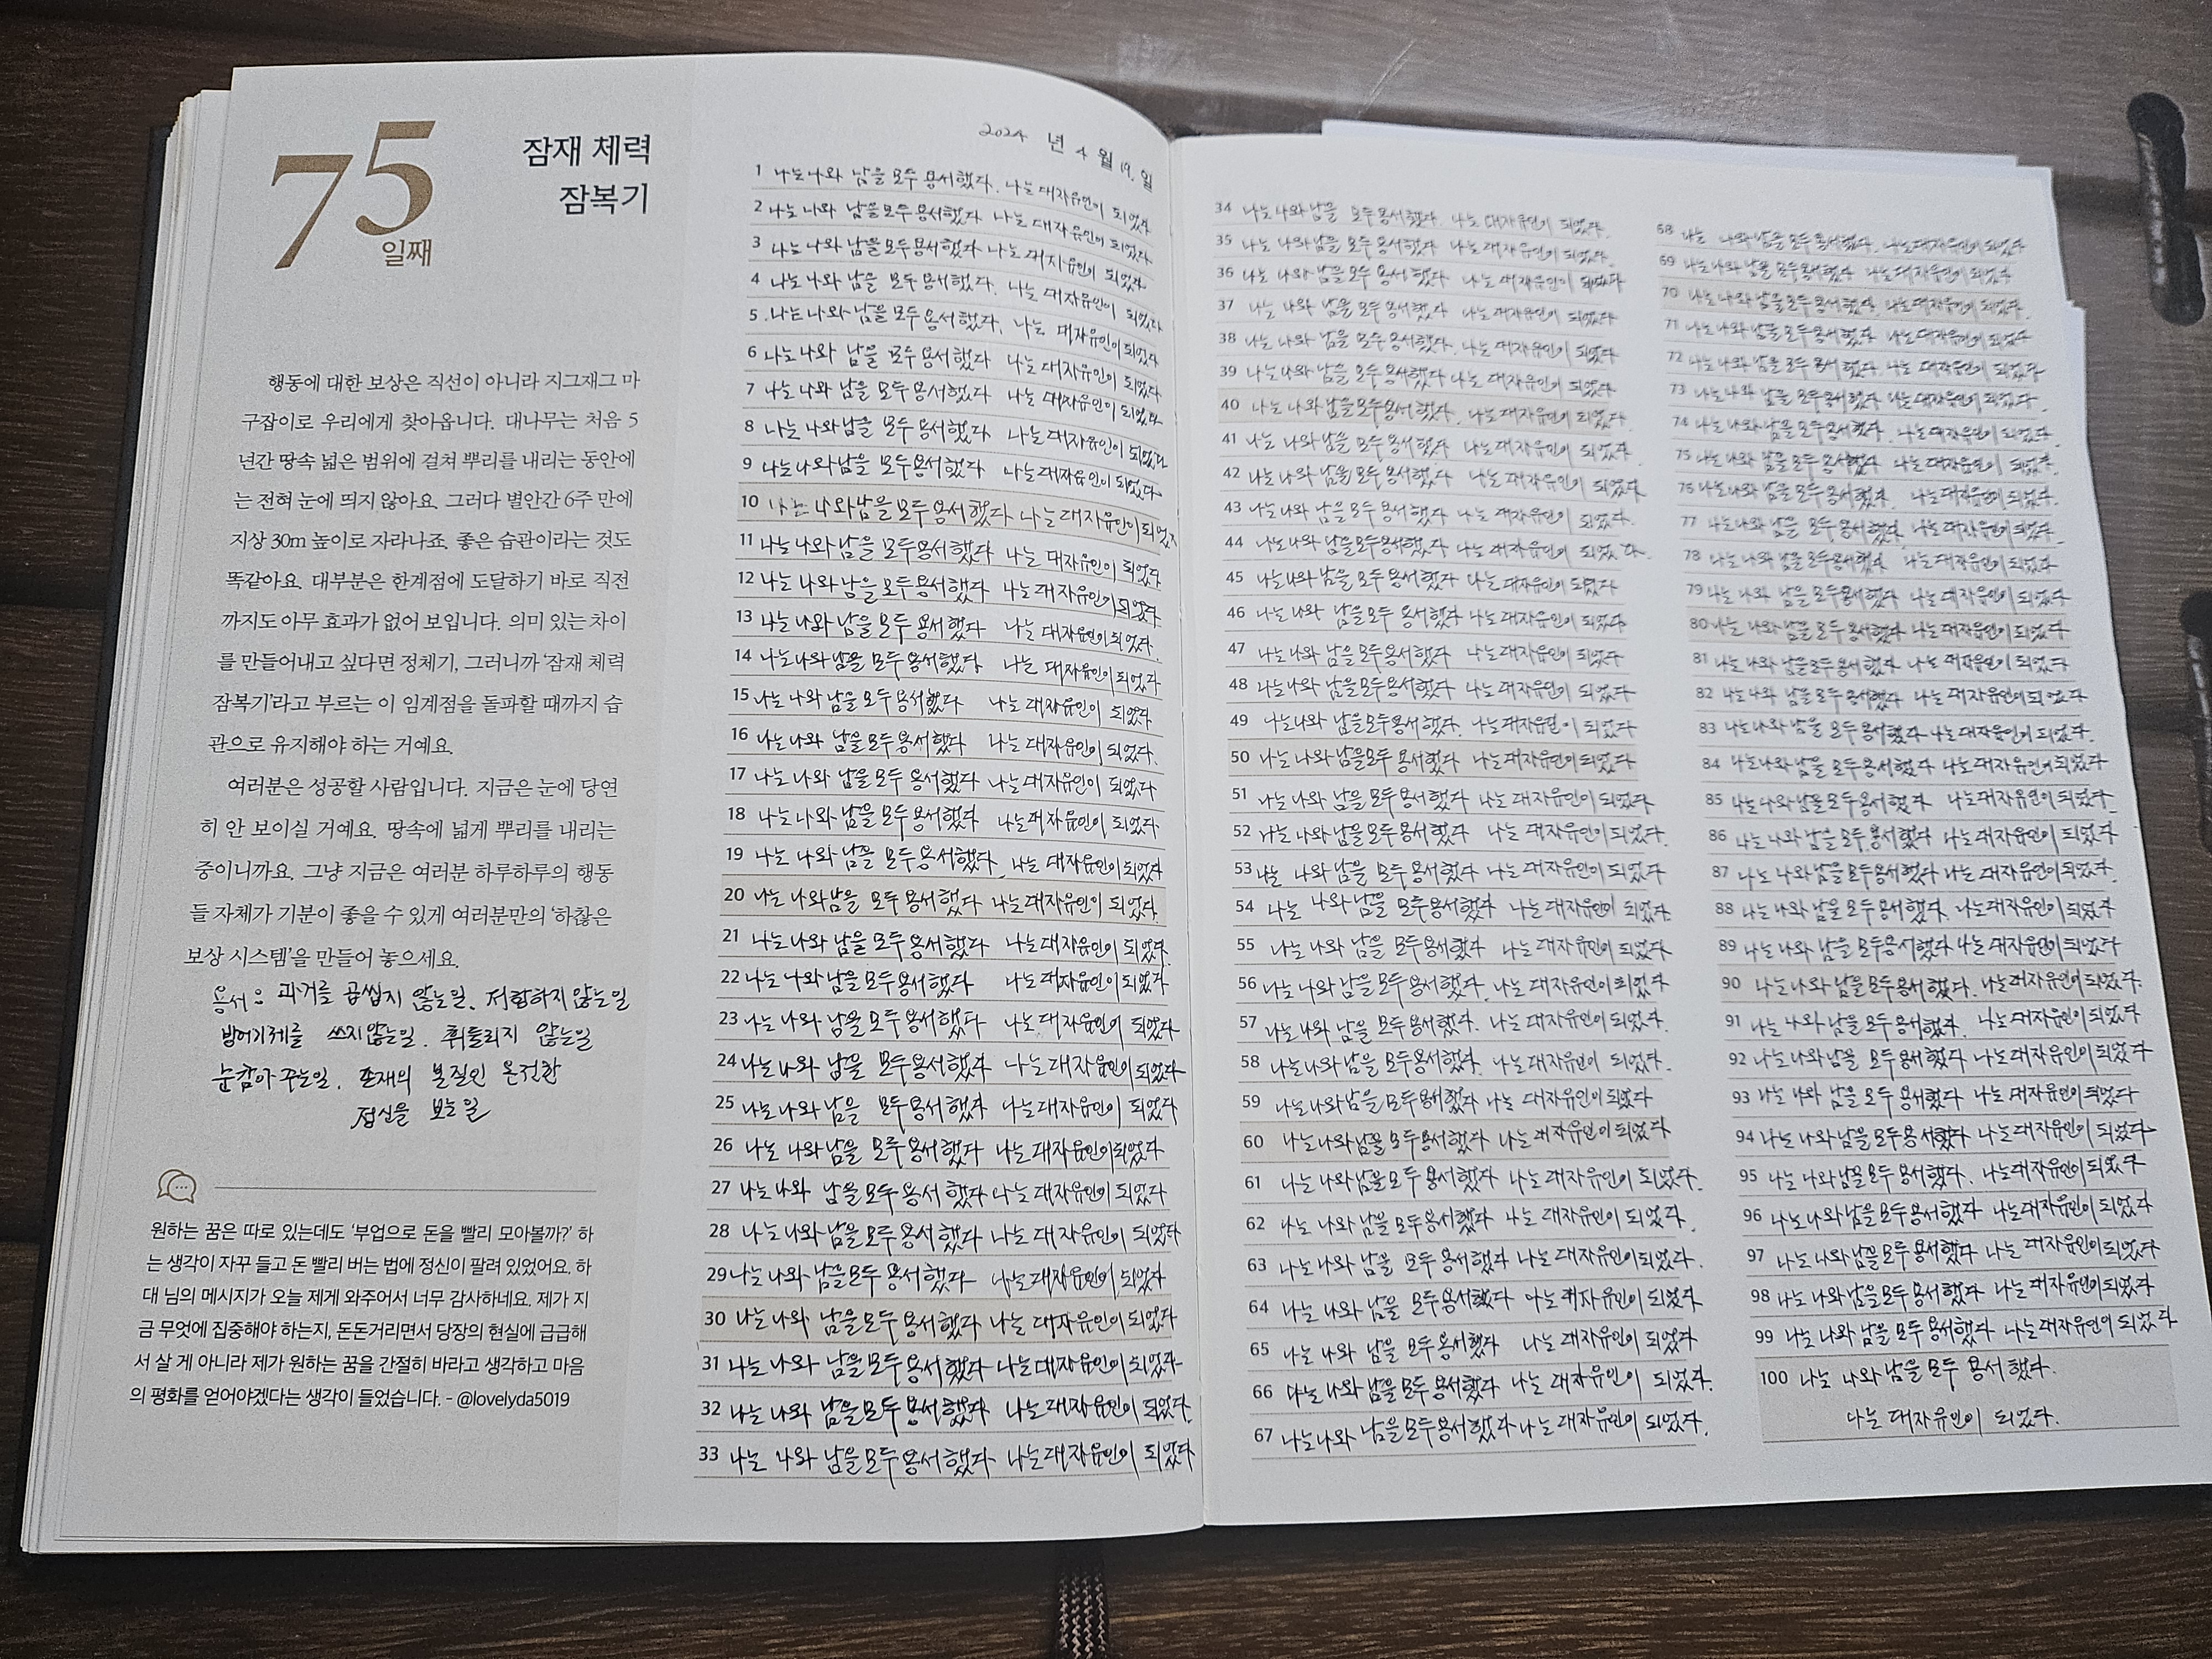 75
일째
잠재 체력
잠복기
행동에 대한 보상은 직선이 아니라 지그재그 마
구잡이로 우리에게 찾아옵니다. 대나무는 처음 5
년간 땅속 넓은 범위에 걸쳐 뿌리를 내리는 동안에
는 전혀 눈에 띄지 않아요. 그러다 별안간 6주 만에
지상 30m 높이로 자라나죠. 좋은 습관이라는 것도
똑같아요. 대부분은 한계점에 도달하기 바로 직전
까지도 아무 효과가 없어 보입니다. 의미 있는 차이
를 만들어내고 싶다면 정체기, 그러니까 '잠재 체력
잠복기'라고 부르는 이 임계점을 돌파할 때까지 습
관으로 유지해야 하는 거예요.
여러분은 성공할 사람입니다. 지금은 눈에 당연
히 안 보이실 거예요. 땅속에 넓게 뿌리를 내리는
중이니까요. 그냥 지금은 여러분 하루하루의 행동
들 자체가 기분이 좋을 수 있게 여러분만의 '하찮은
보상 시스템'을 만들어 놓으세요.
용서 : 과거를 곱씹지 않는일. 저항하지 않는일
방어기제를 쓰지않는일. 휘둘리지 않는일
눈감아 주는일. 존재의 본질인 온전한
정신을 보는일
원하는 꿈은 따로 있는데도 '부업으로 돈을 빨리 모아볼까?' 하
는 생각이 자꾸 들고 돈 빨리 버는 법에 정신이 팔려 있었어요. 하
대 님의 메시지가 오늘 제게 와주어서 너무 감사하네요. 제가 지
금 무엇에 집중해야 하는지, 돈돈거리면서 당장의 현실에 급급해
서 살 게 아니라 제가 원하는 꿈을 간절히 바라고 생각하고 마음
의 평화를 얻어야겠다는 생각이 들었습니다. - @lovelyda5019
2024 년 4 월 19. 일
1 나는 나와 남을 모두 용서했다. 나는 대자유인이 되었다.
2 나는 나와 남을 모두 용서했다 나는 대자유인이 되었다.
3 나는 나와 남을 모두 용서했다 나는 대자유인이 되었다.
4 나는 나와 남을 모두 용서했다. 나는 대자유인이 되었다
5 나는 나와 남을 모두 용서했다. 나는 대자유인이 되었다
6 나는 나와 남을 모두 용서했다 나는 대자유인이 되었다
7 나는 나와 남을 모두 용서했다 나는 대자유인이 되었다.
8 나는 나와 남을 모두 용서했다 나는 대자유인이 되었다
9 나는 나와 남을 모두 용서했다 나는 대자유인이 되었다.
10 나는 나와 남을 모두 용서했다 나는 대자유인이 되었다
11 나는 나와 남을 모두 용서했다 나는 대자유인이 되었다
12 나는 나와 남을 모두 용서했다 나는 대자유인이 되었다.
13 나는 나와 남을 모두 용서했다 나는 대자유인이 되었다.
14 나는 나와 남을 모두 용서했다 나는 대자유인이 되었다
15 나는 나와 남을 모두 용서했다 나는 대자유인이 되었다
16 나는 나와 남을 모두 용서했다 나는 대자유인이 되었다.
17 나는 나와 남을 모두 용서했다 나는 대자유인이 되었다
18 나는 나와 남을 모두 용서했다 나는 대자유인이 되었다.
19 나는 나와 남을 모두 용서했다. 나는 대자유인이 되었다
20 나는 나와 남을 모두 용서했다 나는 대자유인이 되었다.
21 나는 나와 남을 모두 용서했다 나는 대자유인이 되었다.
22 나는 나와 남을 모두 용서했다 나는 대자유인이 되었다
23 나는 나와 남을 모두 용서했다 나는 대자유인이 되었다
24 나는 나와 남을 모두 용서했다 나는 대자유인이 되었다
25 나는 나와 남을 모두 용서했다 나는 대자유인이 되었다
26 나는 나와 남을 모두 용서했다 나는 대자유인이 되었다
27 나는 나와 남을 모두 용서했다 나는 대자유인이 되었다
28 나는 나와 남을 모두 용서했다 나는 대자유인이 되었다
29 나는 나와 남을 모두 용서했다 나는 대자유인이 되었다
30 나는 나와 남을 모두 용서했다 나는 대자유인이 되었다
31 나는 나와 남을 모두 용서했다 나는 대자유인이 되었다
32 나는 나와 남을 모두 용서했다 나는 대자유인이 되었다.
33 나는 나와 남을 모두 용서했다 나는 대자유인이 되었다
34 나는 나와 남을 모두 용서했다. 나는 대자유인이 되었다.
35 나는 나와 남을 모두 용서했다 나는 대자유인이 되었다.
36 나는 나와 남을 모두 용서했다 나는 대자유인이 되었다
37 나는 나와 남을 모두 용서했다 나는 대자유인이 되었다
38 나는 나와 남을 모두 용서했다. 나는 대자유인이 되었다
39 나는 나와 남을 모두 용서했다 나는 대자유인이 되었다
40 나는 나와 남을 모두 용서했다. 나는 대자유인이 되었다.
41 나는 나와 남을 모두 용서했다 나는 대자유인이 되었다.
42 나는 나와 남을 모두 용서했다 나는 대자유인이 되었다
43 나는 나와 남을 모두 용서했다 나는 대자유인이 되었다.
44 나는 나와 남을 모두 용서했다 나는 대자유인이 되었다.
45 나는 나와 남을 모두 용서했다 나는 대자유인이 되었다
46 나는 나와 남을 모두 용서했다 나는 대자유인이 되었다
47 나는 나와 남을 모두 용서했다 나는 대자유인이 되었다
48 나는 나와 남을 모두 용서했다 나는 대자유인이 되었다
49 나는 나와 남을 모두 용서했다. 나는 대자유인이 되었다
50 나는 나와 남을 모두 용서했다 나는 대자유인이 되었다
51 나는 나와 남을 모두 용서했다 나는 대자유인이 되었다
52 나는 나와 남을 모두 용서했다 나는 대자유인이 되었다.
53 나는 나와 남을 모두 용서했다 나는 대자유인이 되었다
54 나는 나와 남을 모두 용서했다 나는 대자유인이 되었다.
55 나는 나와 남을 모두 용서했다 나는 대자유인이 되었다.
56 나는 나와 남을 모두 용서했다. 나는 대자유인이 되었다
57 나는 나와 남을 모두 용서했다. 나는 대자유인이 되었다.
58 나는 나와 남을 모두 용서했다. 나는 대자유인이 되었다.
59 나는 나와 남을 모두 용서했다 나는 대자유인이 되었다
60 나는 나와 남을 모두 용서했다 나는 대자유인이 되었다
61 나는 나와 남을 모두 용서했다 나는 대자유인이 되었다.
62 나는 나와 남을 모두 용서했다 나는 대자유인이 되었다.
63 나는 나와 남을 모두 용서했다 나는 대자유인이 되었다.
64 나는 나와 남을 모두 용서했다 나는 대자유인이 되었다
65 나는 나와 남을 모두 용서했다 나는 대자유인이 되었다
66 나는 나와 남을 모두 용서했다 나는 대자유인이 되었다.
67 나는 나와 남을 모두 용서했다 나는 대자유인이 되었다.
68 나는 나와 남을 모두 용서했다. 나는 대자유인이 되었다
69 나는 나와 남을 모두 용서했다 나는 대자유인이 되었다
70 나는 나와 남을 모두 용서했다. 나는 대자유인이 되었다.
71 나는 나와 남을 모두 용서했다 나는 대자유인이 되었다
72 나는 나와 남을 모두 용서했다. 나는 대자유인이 되었다
73 나는 나와 남을 모두 용서했다 나는 대자유인이 되었다.
74 나는 나와 남을 모두 용서했다. 나는 대자유인이 되었다.
75 나는 나와 남을 모두 용서했다 나는 대자유인이 되었다.
76 나는 나와 남을 모두 용서했다. 나는 대자유인이 되었다.
77 나는 나와 남을 모두 용서했다 나는 대자유인이 되었다.
78 나는 나와 남을 모두 용서했다 나는 대자유인이 되었다
79 나는 나와 남을 모두 용서했다 나는 대자유인이 되었다
80 나는 나와 남을 모두 용서했다 나는 대자유인이 되었다
81 나는 나와 남을 모두 용서했다 나는 대자유인이 되었다
82 나는 나와 남을 모두 용서했다 나는 대자유인이 되었다
83 나는 나와 남을 모두 용서했다 나는 대자유인이 되었다.
84 나는 나와 남을 모두 용서했다 나는 대자유인이 되었다
85 나는 나와 남을 모두 용서했다 나는 대자유인이 되었다.
86 나는 나와 남을 모두 용서했다 나는 대자유인이 되었다
87 나는 나와 남을 모두 용서했다 나는 대자유인이 되었다.
88 나는 나와 남을 모두 용서했다. 나는 대자유인이 되었다
89 나는 나와 남을 모두 용서했다 나는 대자유인이 되었다
90 나는 나와 남을 모두 용서했다. 나는 대자유인이 되었다.
91 나는 나와 남을 모두 용서했다. 나는 대자유인이 되었다
92 나는 나와 남을 모두 용서했다 나는 대자유인이 되었다
93 나는 나와 남을 모두 용서했다 나는 대자유인이 되었다
94 나는 나와 남을 모두 용서했다 나는 대자유인이 되었다
95 나는 나와 남을 모두 용서했다. 나는 대자유인이 되었다
96 나는 나와 남을 모두 용서했다 나는 대자유인이 되었다
97 나는 나와 남을 모두 용서했다 나는 대자유인이 되었다
98 나는 나와 남을 모두 용서했다 나는 대자유인이 되었다
99 나는 나와 남을 모두 용서했다 나는 대자유인이 되었다
100 나는 나와 남을 모두 용서했다.
나는 대자유인이 되었다.